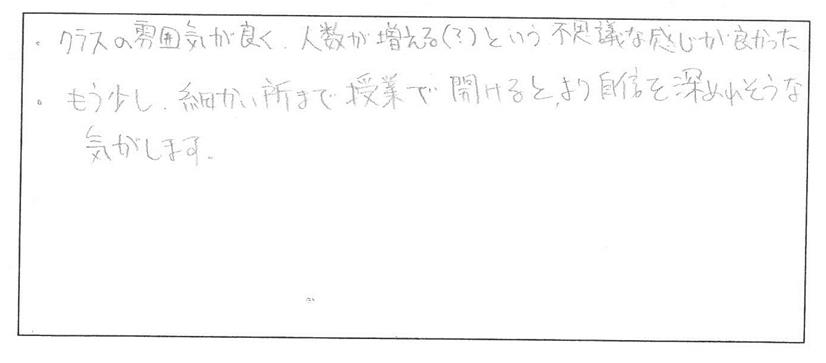 ・クラスの雰囲気が良く、人数が増える(?)という不思議な感じが良かった
・もう少し、細かい所まで授業で聞けると、より自信を深めれそうな
気がします。